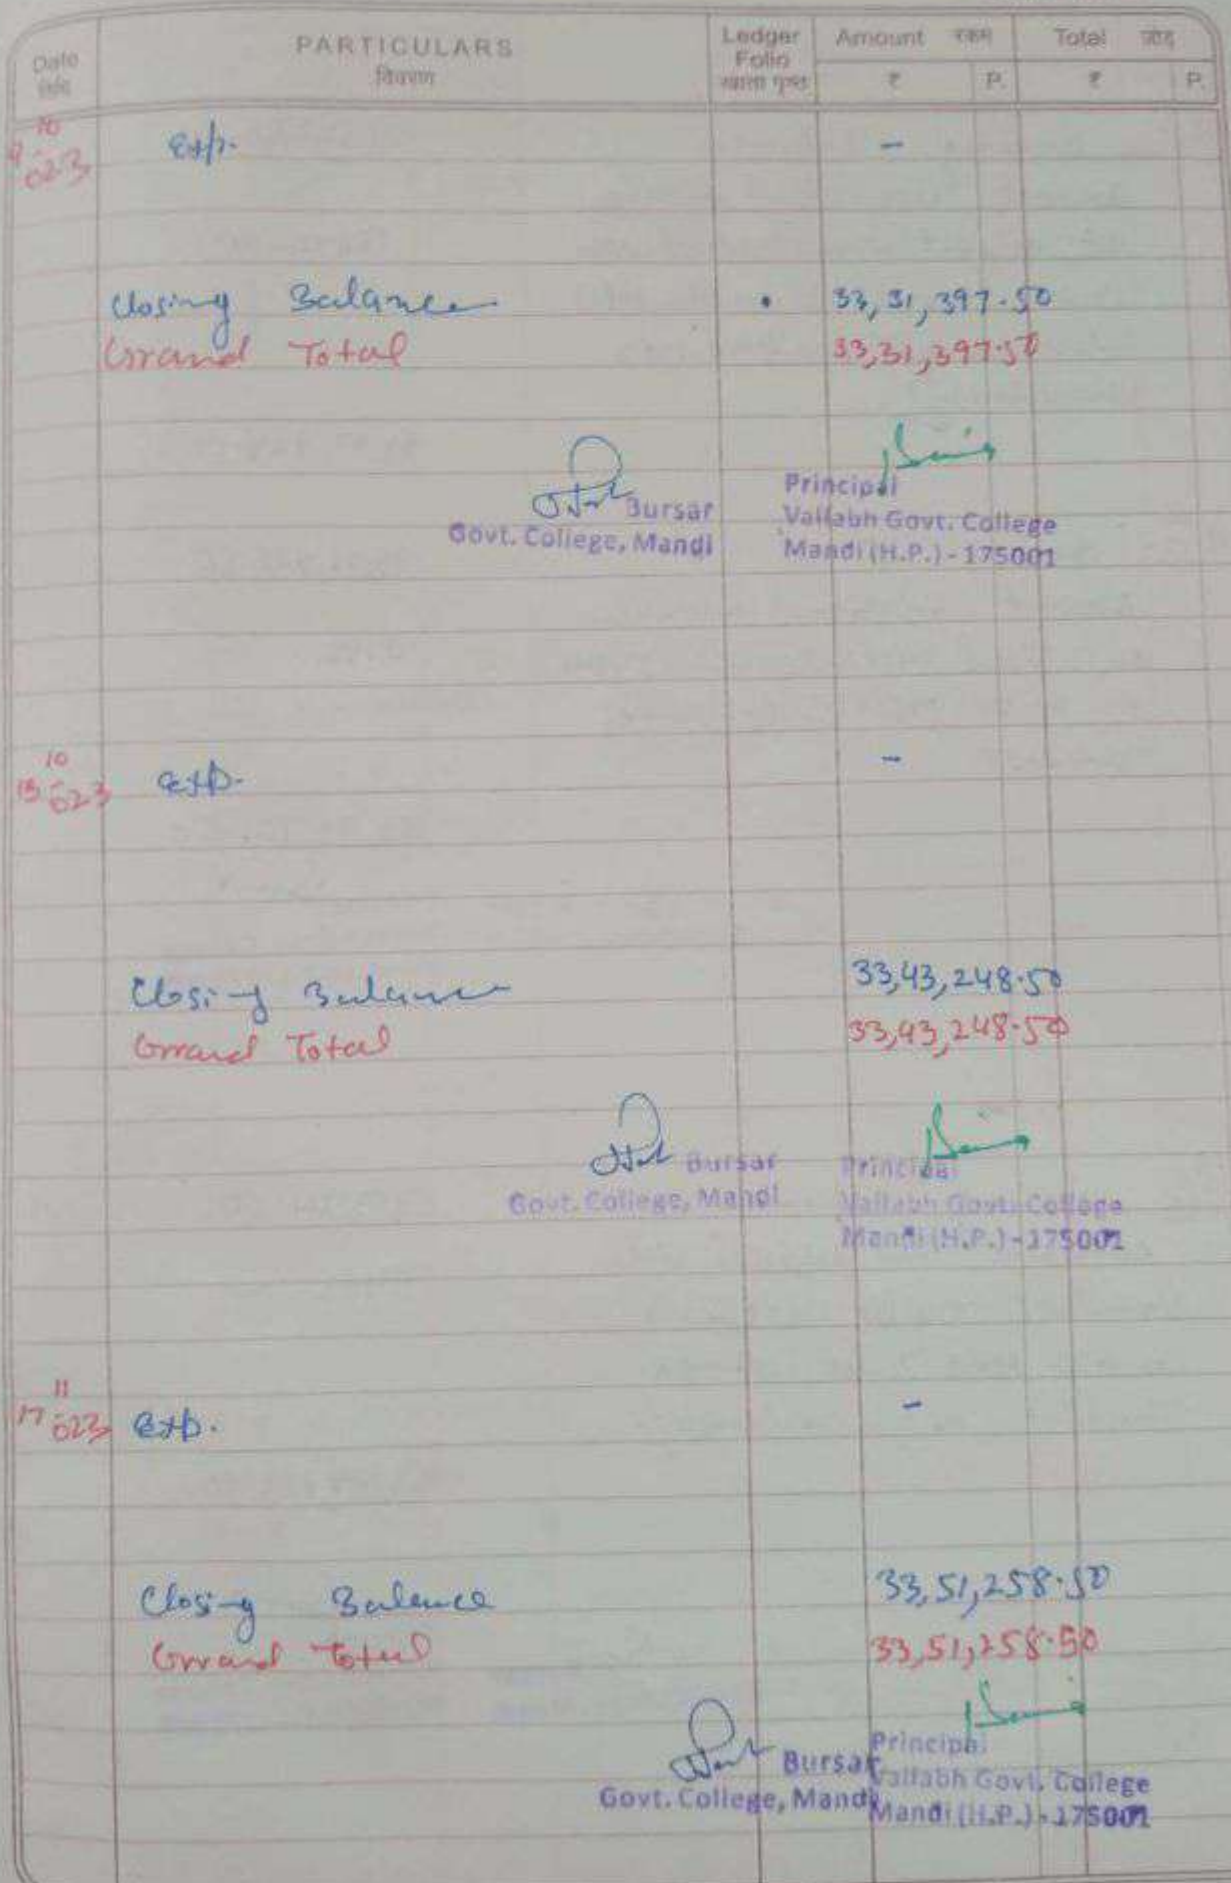 Date PARTICULARS Ledger Folio Amount रकम Total जोड़
विवरण खाता पृष्ठ ₹ P. ₹ P.
10
9 023 Exp. -
Closing Balance 33,31,397.50
Grand Total 33,31,397.50
Bursar
Govt. College, Mandi
Principal
Vallabh Govt. College
Mandi (H.P.) - 175001
10
13 023 Exp. -
Closing Balance 33,43,248.50
Grand Total 33,43,248.50
Bursar
Govt. College, Mandi
Principal
Vallabh Govt. College
Mandi (H.P.) - 175001
11
17 023 Exp. -
Closing Balance 33,51,258.50
Grand Total 33,51,258.50
Bursar
Govt. College, Mandi
Principal
Vallabh Govt. College
Mandi (H.P.) - 175001